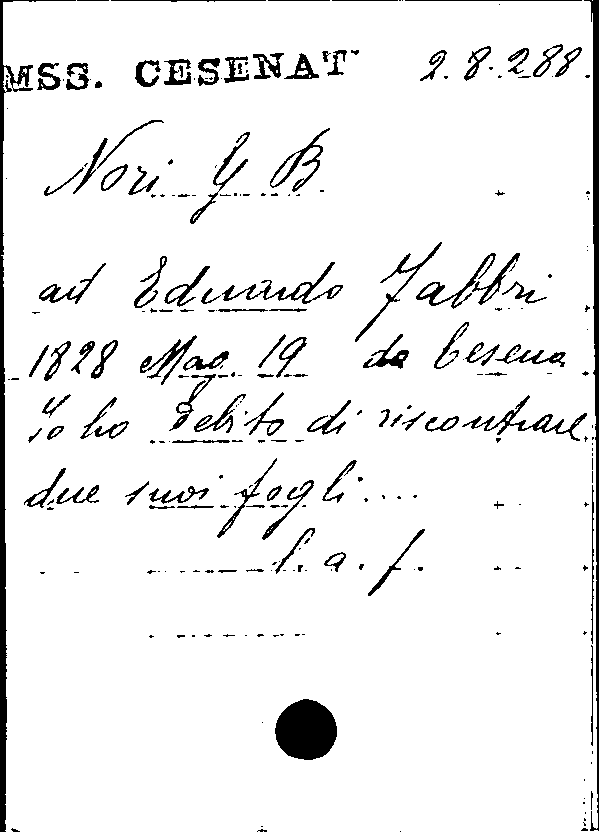 MSS. CESENAT 2.8.288.
Nori G B
ad Eduardo Fabbri
1828 Mag. 19 da Cesena
Io ho debito di riscontrare
due suoi fogli....
l. a. f.